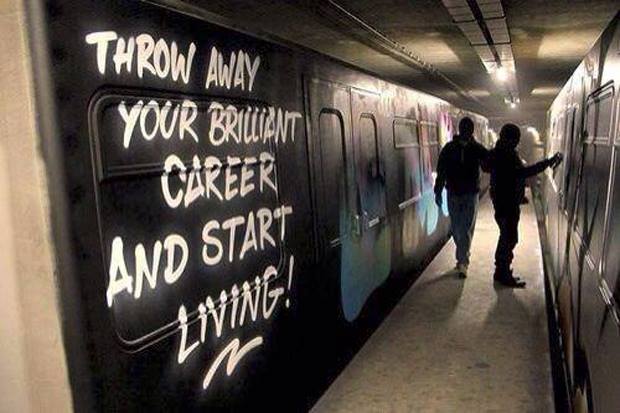 THROW AWAY
YOUR BRILLIANT
CAREER
AND START
LIVING!